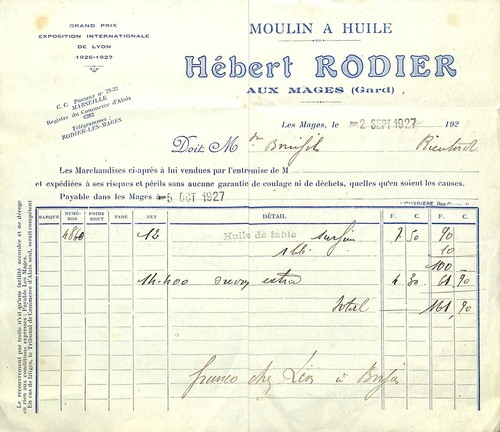 GRAND PRIX
EXPOSITION INTERNATIONALE
DE LYON
1926-1927
MOULIN A HUILE
Hébert RODIER
AUX MAGES (Gard)
C. C. Postaux N° 29-33
MARSEILLE
Registre du Commerce d'Alais
Télégrammes :
RODIER-LES-MAGES
Les Mages, le 2 SEPT 1927 192
Doit M
Les Marchandises ci-après à lui vendues par l'entremise de M
et expédiées à ses risques et périls sans aucune garantie de coulage ni de déchets, quelles qu'en soient les causes.
Payable dans les Mages à 5 OCT 1927
MARQUE NUMÉROS POIDS BRUT TARE NET DÉTAIL F. C. F. C.
4860 12 Huile de table surfine 7 50 90
10
100
14k400 savon extra 4 30 61 90
Total 161 90
franco chez Léon à
Le recouvrement par traite n'est qu'une facilité accordée et ne déroge
en rien aux conditions expresses : Payable Les Mages.
En cas de litiges, le Tribunal de Commerce d'Alais seul, serait compétent